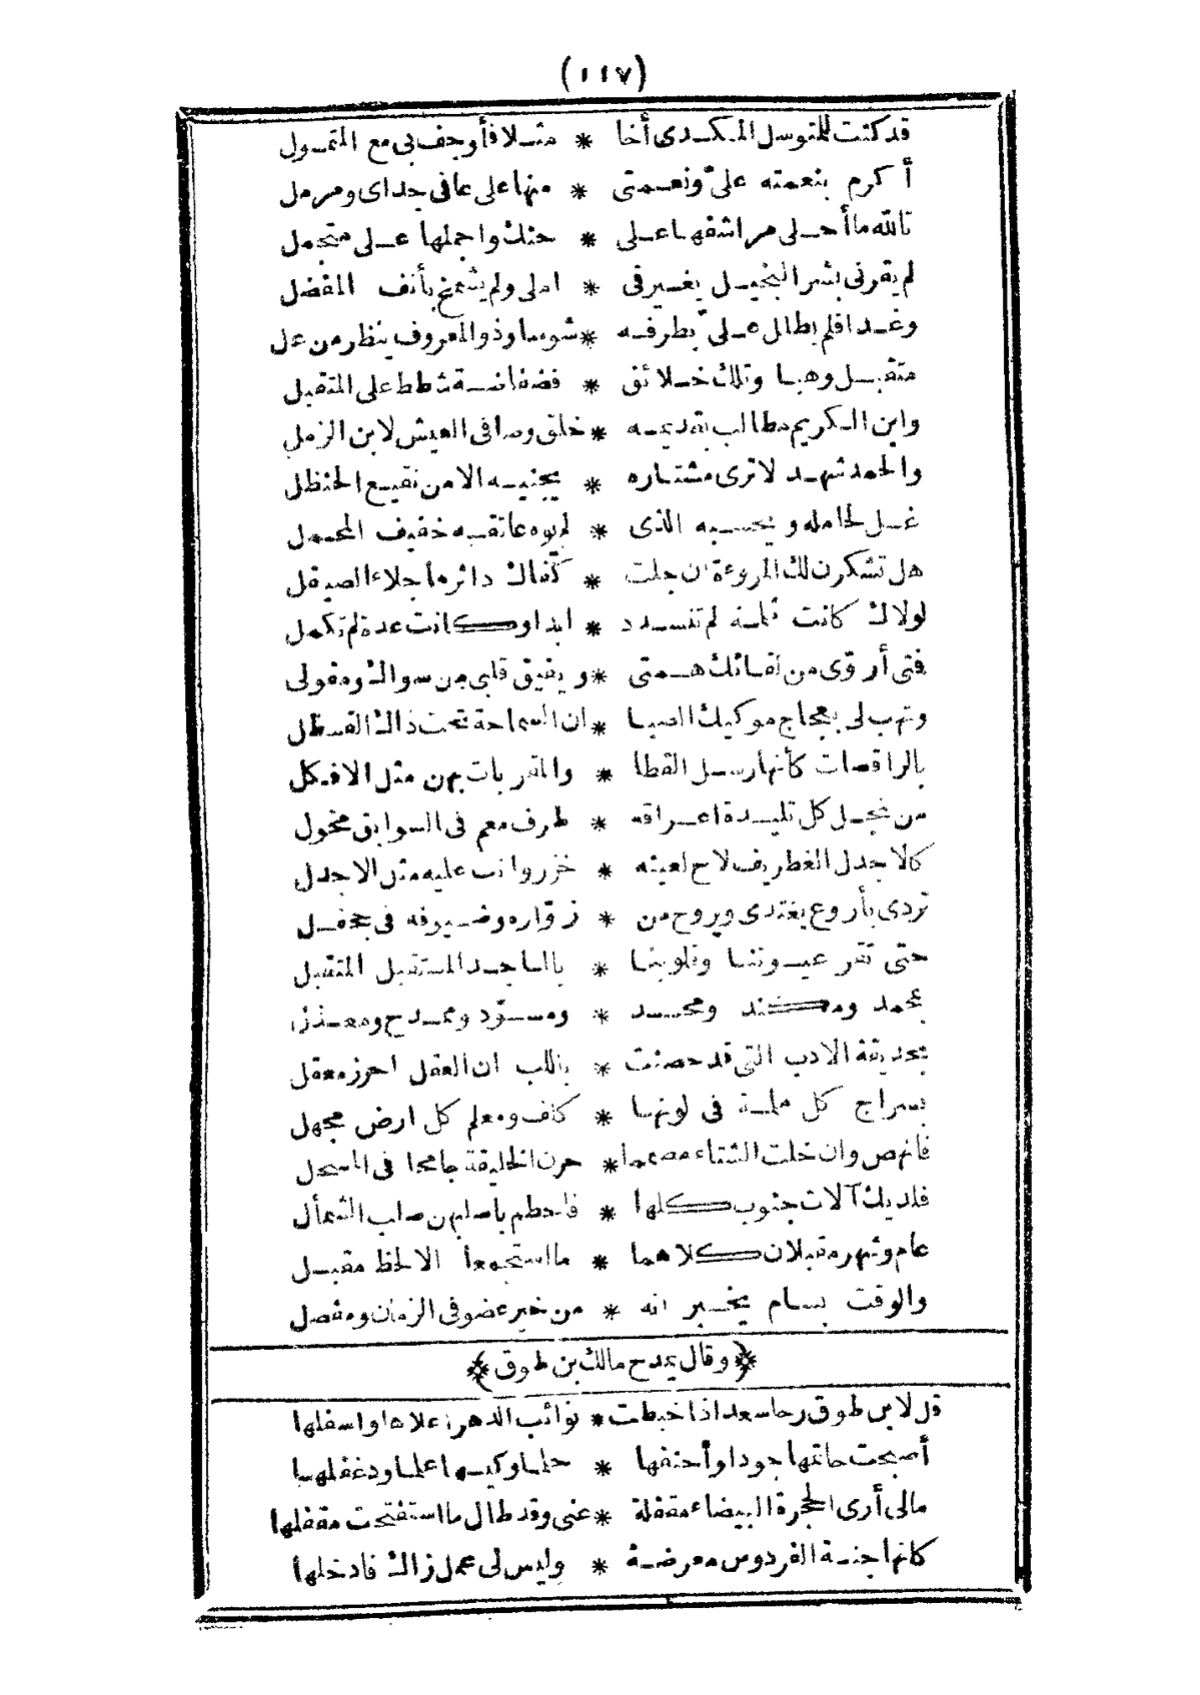 (١١٧)
قد كنت للمتوسل المكدى أخا * مثلا فأوجف بى مع المتمول
أكرم بنعمته علىّ ونعمتى * منها على عافى جداى ومرمل
تالله ما أحلى مراشفها على * حنك واجملها على متجمل
لم يقرنى بشر البخيل بغير فى * املى ولم يشمخ بأنف المفضل
وغدا فلم بطال علىّ بطرفه * شوسا وذو المعروف ينظر من عل
متقبل وهبا وتلك خلائق * فضفاضة شطط على المتقبل
وابن الكريم مطالب بقديمه * خلق وصافى العيش لابن الزمل
والحمد شهد لا ترى مشتاره * يجنيه الا من نقيع الحنظل
غل لحامله ويحسبه الذى * لم يوه عاتقه خفيف المحمل
هل تشكرن لك المروءة ان جلت * كفاك دائرها جلاء الصيقل
لولاك كانت ثلمة لم تنسدد * ابدا وكانت عدة لم تكمل
فتى أروى من لقائك همتى * ويفيق قلبى من سواك ومقولى
وتهب لى بعجاج موكبك الصبا * ان السماحة تحت ذاك القسطل
بالراقصات كأنها رسل القطا * والمقربات بهن مثل الافكل
من نجل كل تليدة اعراقه * طرف معم فى السوابق مخول
كالاجدل الغطريف لاح لعينه * خزر وانت عليه مثل الاجدل
تردى بأروع يغتدى ويروح من * زوّاره وضيوفه فى جحفل
حتى تقر عيوننا وقلوبنا * بالماجد المستقبل المتقبل
بمحمد ومكند ومحسد * ومسوّد وممدح ومعذل
بحديقة الادب التى قد حصنت * باللب ان العقل احرز معقل
بسراج كل ملمة فى لونها * كاف ومعلم كل ارض مجهل
فانهض وان خلت الشتاء مصمما * حرن الخليقة جامحا فى المسحل
فلديك آلات جنوب كلها * فاحطم باصلبهن صلب الشمأل
عام وشهر مقبلان كلاهما * ما استجمعا الا لحظ مقبل
والوقت بسام يخبر انه * من خير عضو فى الزمان ومفصل
﴿وقال يمدح مالك بن طوق﴾
قل لابن طوق رحا سعد اذا خبطت * نوائب الدهر اعلاها واسفلها
أصبحت حاتمها جودا وأحنفها * حلما وكيسها علما ودغفلها
مالى أرى الحجرة البيضاء مقفلة * عنى وقد طال ما استفتحت مقفلها
كانها جنة الفردوس معرضة * وليس لى عمل زاك فادخلها